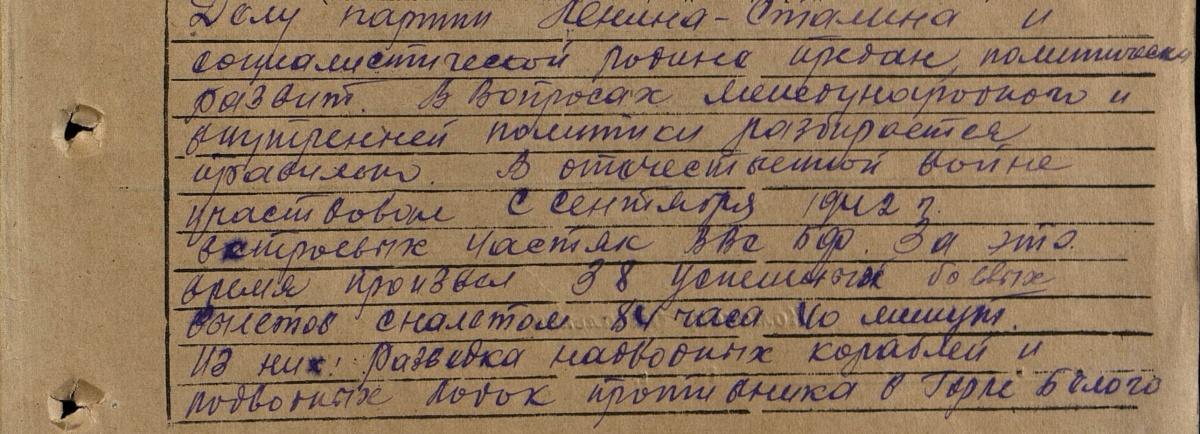 Делу партии Ленина-Сталина и
социалистической родине предан, политически
развит. В вопросах международного и
внутренней политики разбирается
правильно. В отечественной войне
участвовал с сентября 1942 г.
в строевых частях ВВС БФ. За это
время произвел 38 успешных боевых
вылетов с налетом 84 часа 40 минут.
Из них: Разведка надводных кораблей и
подводных лодок противника в Горле Белого